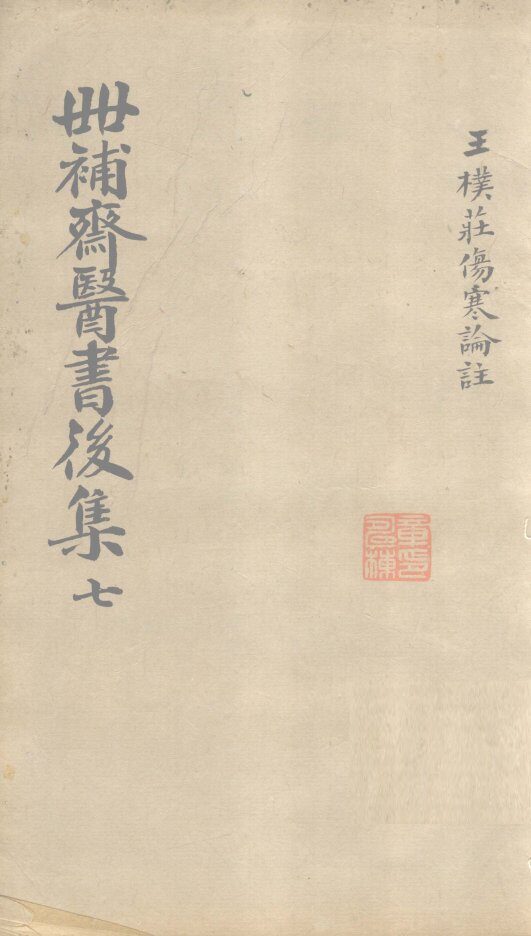 王樸莊傷寒論註
世補齋醫書後集 七